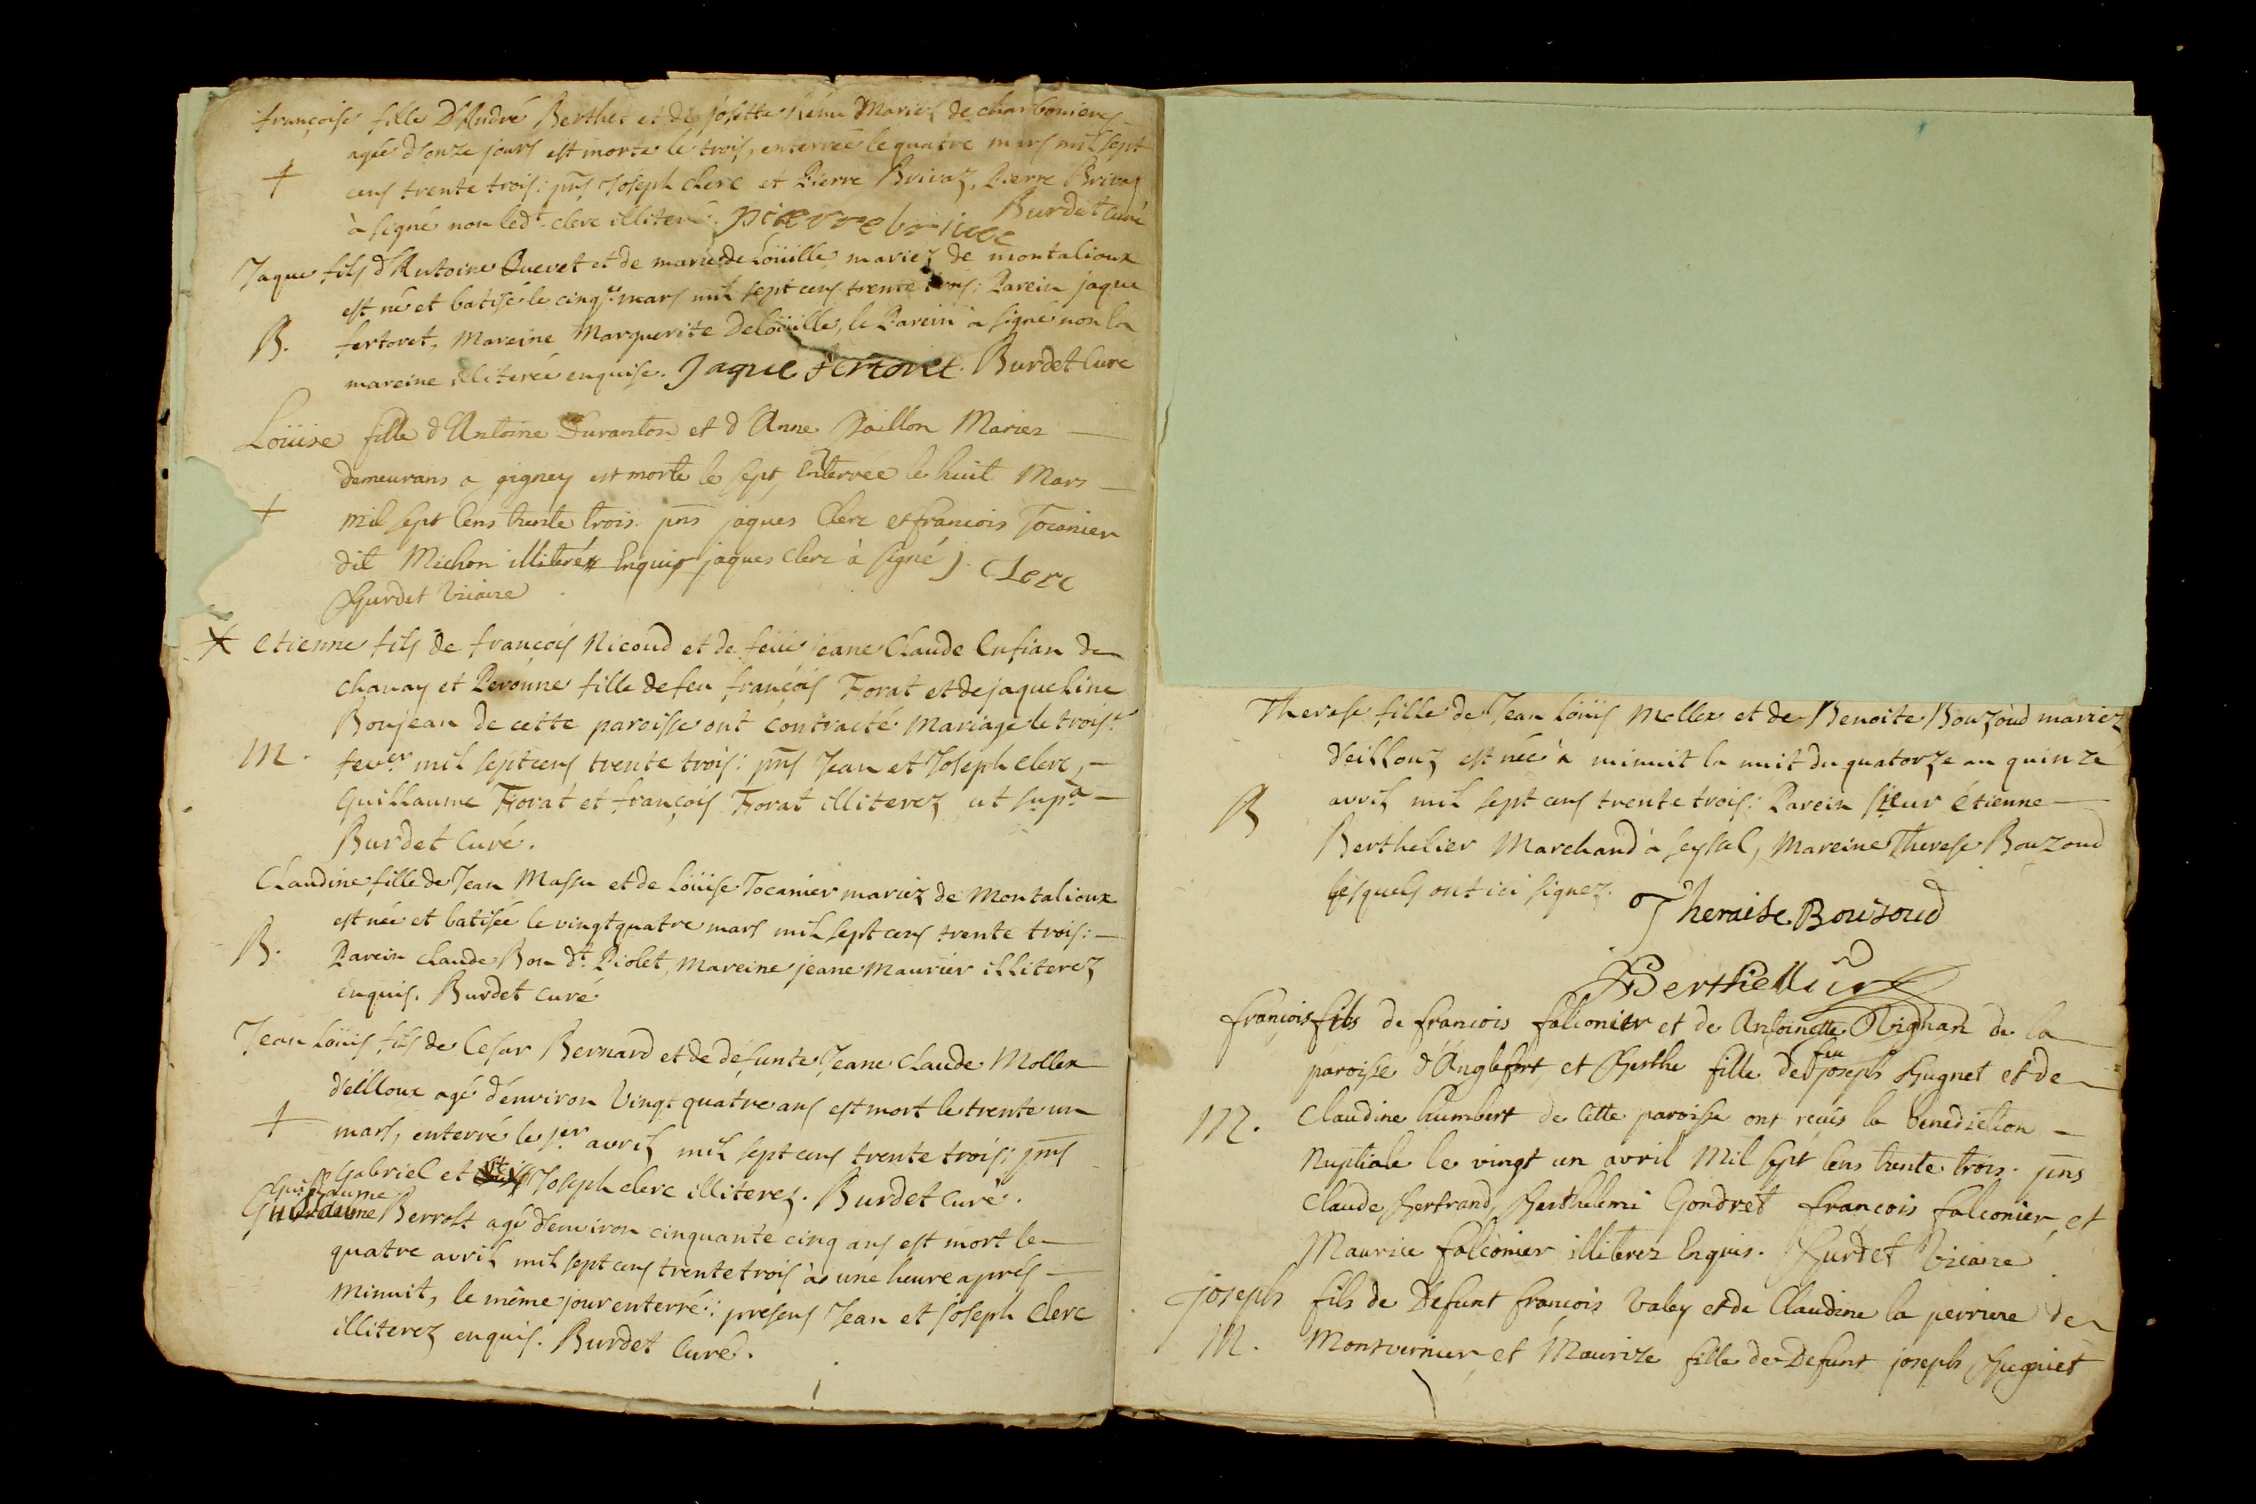 françoise fille D'André Berthet et de josette Rému Mariez de charbonieres
agée d'onze jours est morte le trois, enterrée le quatre mars mil sept
+ cens trente trois: pns Joseph clerc et Pierre Brivaz, Pierre Brivaz
à signé non ledt. clerc illiteré. pierre brivaz Burdet Curé
Jaque fils d'Antoine Quevet et de marie de Loüille mariez de montalioux
est né et batisé le cinq mars mil sept cens trente trois: Parein jaque
B. fertoret, Mareine Marguerite Deloüille, le Parein à signé non la
mareine illiterée enquise. Jaque fertoret. Burdet Curé
Loüise fille d'Antoine Duranton et d'Anne Paillon Mariez
demeurans a gigney est morte le sept, Enterrée le huit Mars
+ mil sept Cens trente trois. pns jaques Clerc et francois Tocanier
dit Michon illiteréz Enquis jaques Clerc à signé J. Clerc
Burdet Vicaire
+ etienne fils de françois Nicoud et de feüe jeane Claude Cufian de
Chanay et Peronne fille de feu françois Forat et de jaqueline
Boujean de cette paroisse ont contracté Mariage le trois.
M. fever mil sept cens trente trois: pns Jean et Joseph clerc,
Guillaume Forat et françois Forat illiterez ut supa
Burdet Curé.
Claudine fille de Jean Massu et de Loüise Tocanier mariez de Montalioux
est née et batisée le vingt quatre mars mil sept cens trente trois:
B. Parein claude Bon dt. Piolet, Mareine jeane Maurier illiterez
enquis. Burdet curé
Jean Loüis fils de Cesar Bernard et de défunte Jeane Claude Mollex
d'eilloux agé d'environ Vingt quatre ans est mort le trente un
+ mars, enterré le 1er avril mil sept cens trente trois; pns
Gabriel et Joseph clerc illiterez. Burdet Curé.
Guillaume
Guillaume Berrolt agé d'environ cinquante cinq ans est mort le
quatre avril mil sept cens trente trois à une heure après
Minuit, le même jour enterré: presens Jean et joseph Clerc
illiterez enquis. Burdet Curé.
Therese fille de Jean Loüis Mollex et de Benoite Bouzoud mariez
d'eilloux est née à minuit la nuit du quatorze au quinze
B avril mil sept cens trente trois: Parein sieur étienne
Berthelier Marchand à seyssel, Mareine Therese Bouzoud
lesquels ont ici signez. Theraise Bousoud
Berthellier
francois fils de francois falconier et de Antoinette Vignan de la
paroisse d'Anglefort et Berthe fille de feu joseph Hugnet et de
M. Claudine humbert de Cette paroisse ont reçus la benediction
Nuptiale le vingt un avril Mil sept Cens trente trois. pns
Claude Bertrand, Berthelemi Gondret francois falconier et
Maurice falconier illiterez Enquis. Burdet Vicaire
joseph fils de Defunt francois Valey et de Claudine la perriere de
M. Montvernier et Maurize fille de Defunt joseph Huguiet